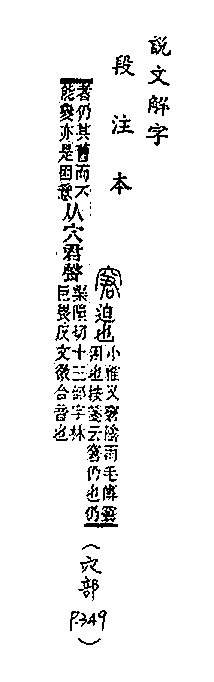 說文解字
段注本
窘迫也
小雅又窘陰雨毛傳窘
困也按箋云窘仍也仍
著仍其舊而不
能變亦是困意
从穴君聲
渠隕切十三部字林
巨畏反文微合音也
(穴部 P.349)